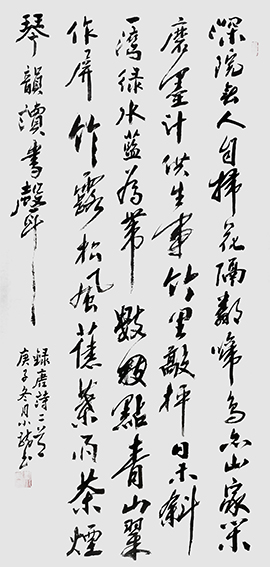 深院无人自掃花隔鄰啼鳥亦山家案
磨墨計供生事竹里敲枰日未斜
一灣緑水藍為带數點青山翠
作屏竹露松風蕉葉雨茶煙
琴韻讀書聲
録唐詩二首
庚子冬月小